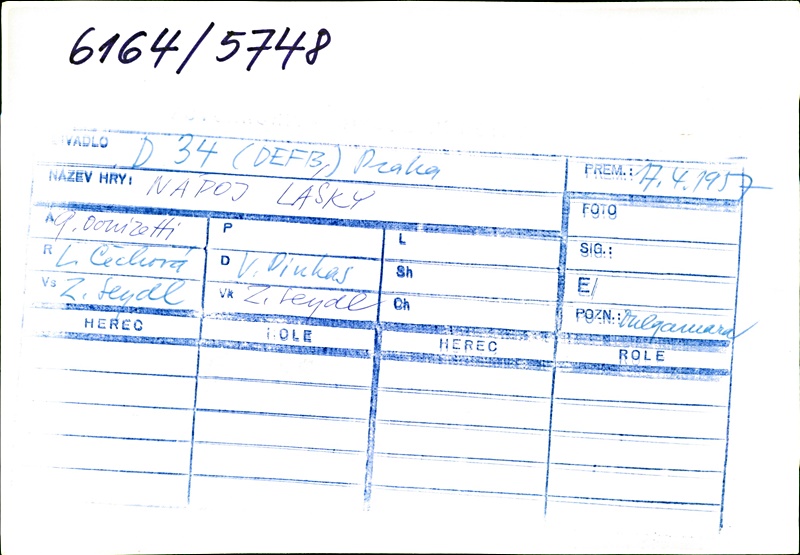 6164/5748
IVADLO D 34 (DEFB,) Praha PREM.: 17.4.1957
NÁZEV HRY: NÁPOJ LÁSKY FOTO
A G. Donizetti P L SIG.:
R L. Čechová D V. Pinkas Sh E/
Vs Z. Seydl Vk Z. Seydl Ch POZN.:
HEREC ROLE HEREC ROLE